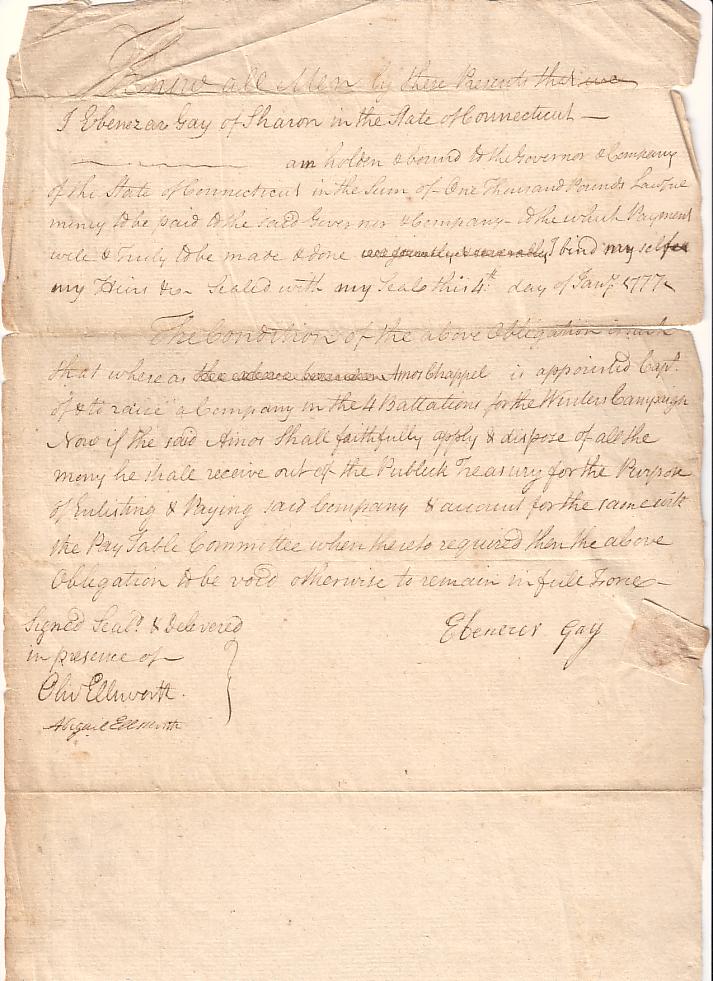 Know all Men by these Presents that we
I Ebenezar Gay of Sharon in the State of Connecticut —
am holden & bound to the Governor & Company
of the State of Connecticut in the Sum of One Thousand Pounds Lawfue
money to be paid to the said Governor & Company – to the which Payment
well & Truly to be made & done we joyntly & severally I bind my self
my Heirs &c Sealed with my Seal this 4th day of Jany. 1777
The Condition of the above Obligation is such
that whereas the above bounden Amos Chappel is appointed Capt.
of & to raise a Company in the 4 Battalions for the Winters Campaign
Now if the said Amos Shall faithfully apply & dispose of all the
money he shall receive out of the Publick Treasury for the Purpose
of Enlisting & Paying said Company & account for the same with
the Pay Table Committee when thereto required then the above
Obligation to be void otherwise to remain in full Force –
Signed Seald. & Delivered
Ebenezer Gay
in presence of
Oliv Ellsworth.
Abigail Ellsworth